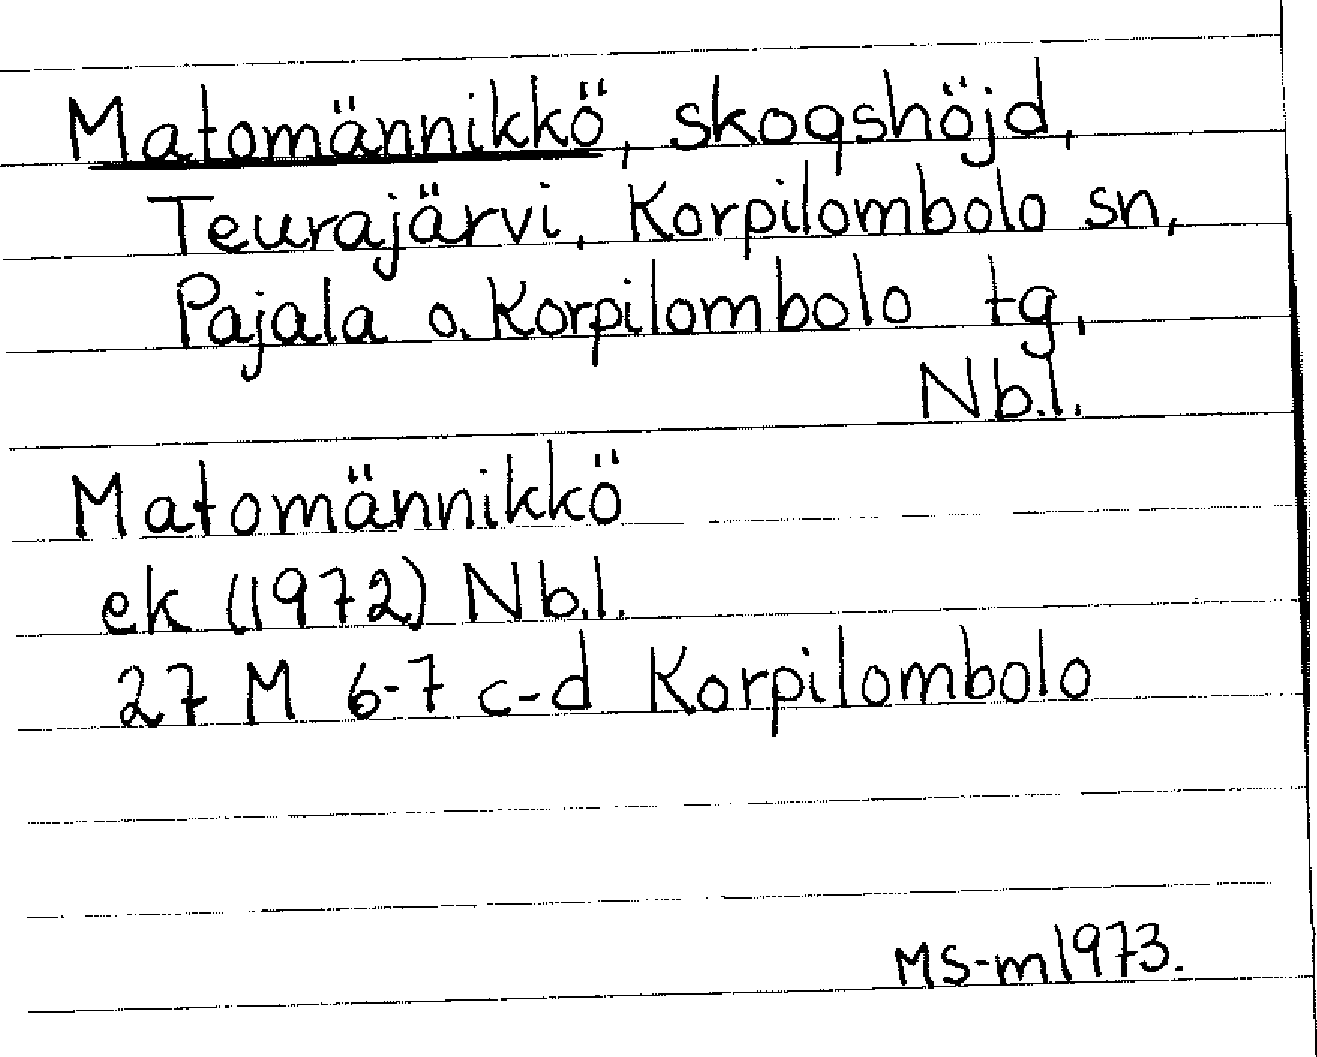 Matomännikkö, skogshöjd,
Teurajärvi, Korpilombolo sn,
Pajala o. Korpilombolo tg,
Nb.l.
Matomännikkö
ek (1972) Nb.l.
27 M 6-7 c-d Korpilombolo
MS-m 1973.